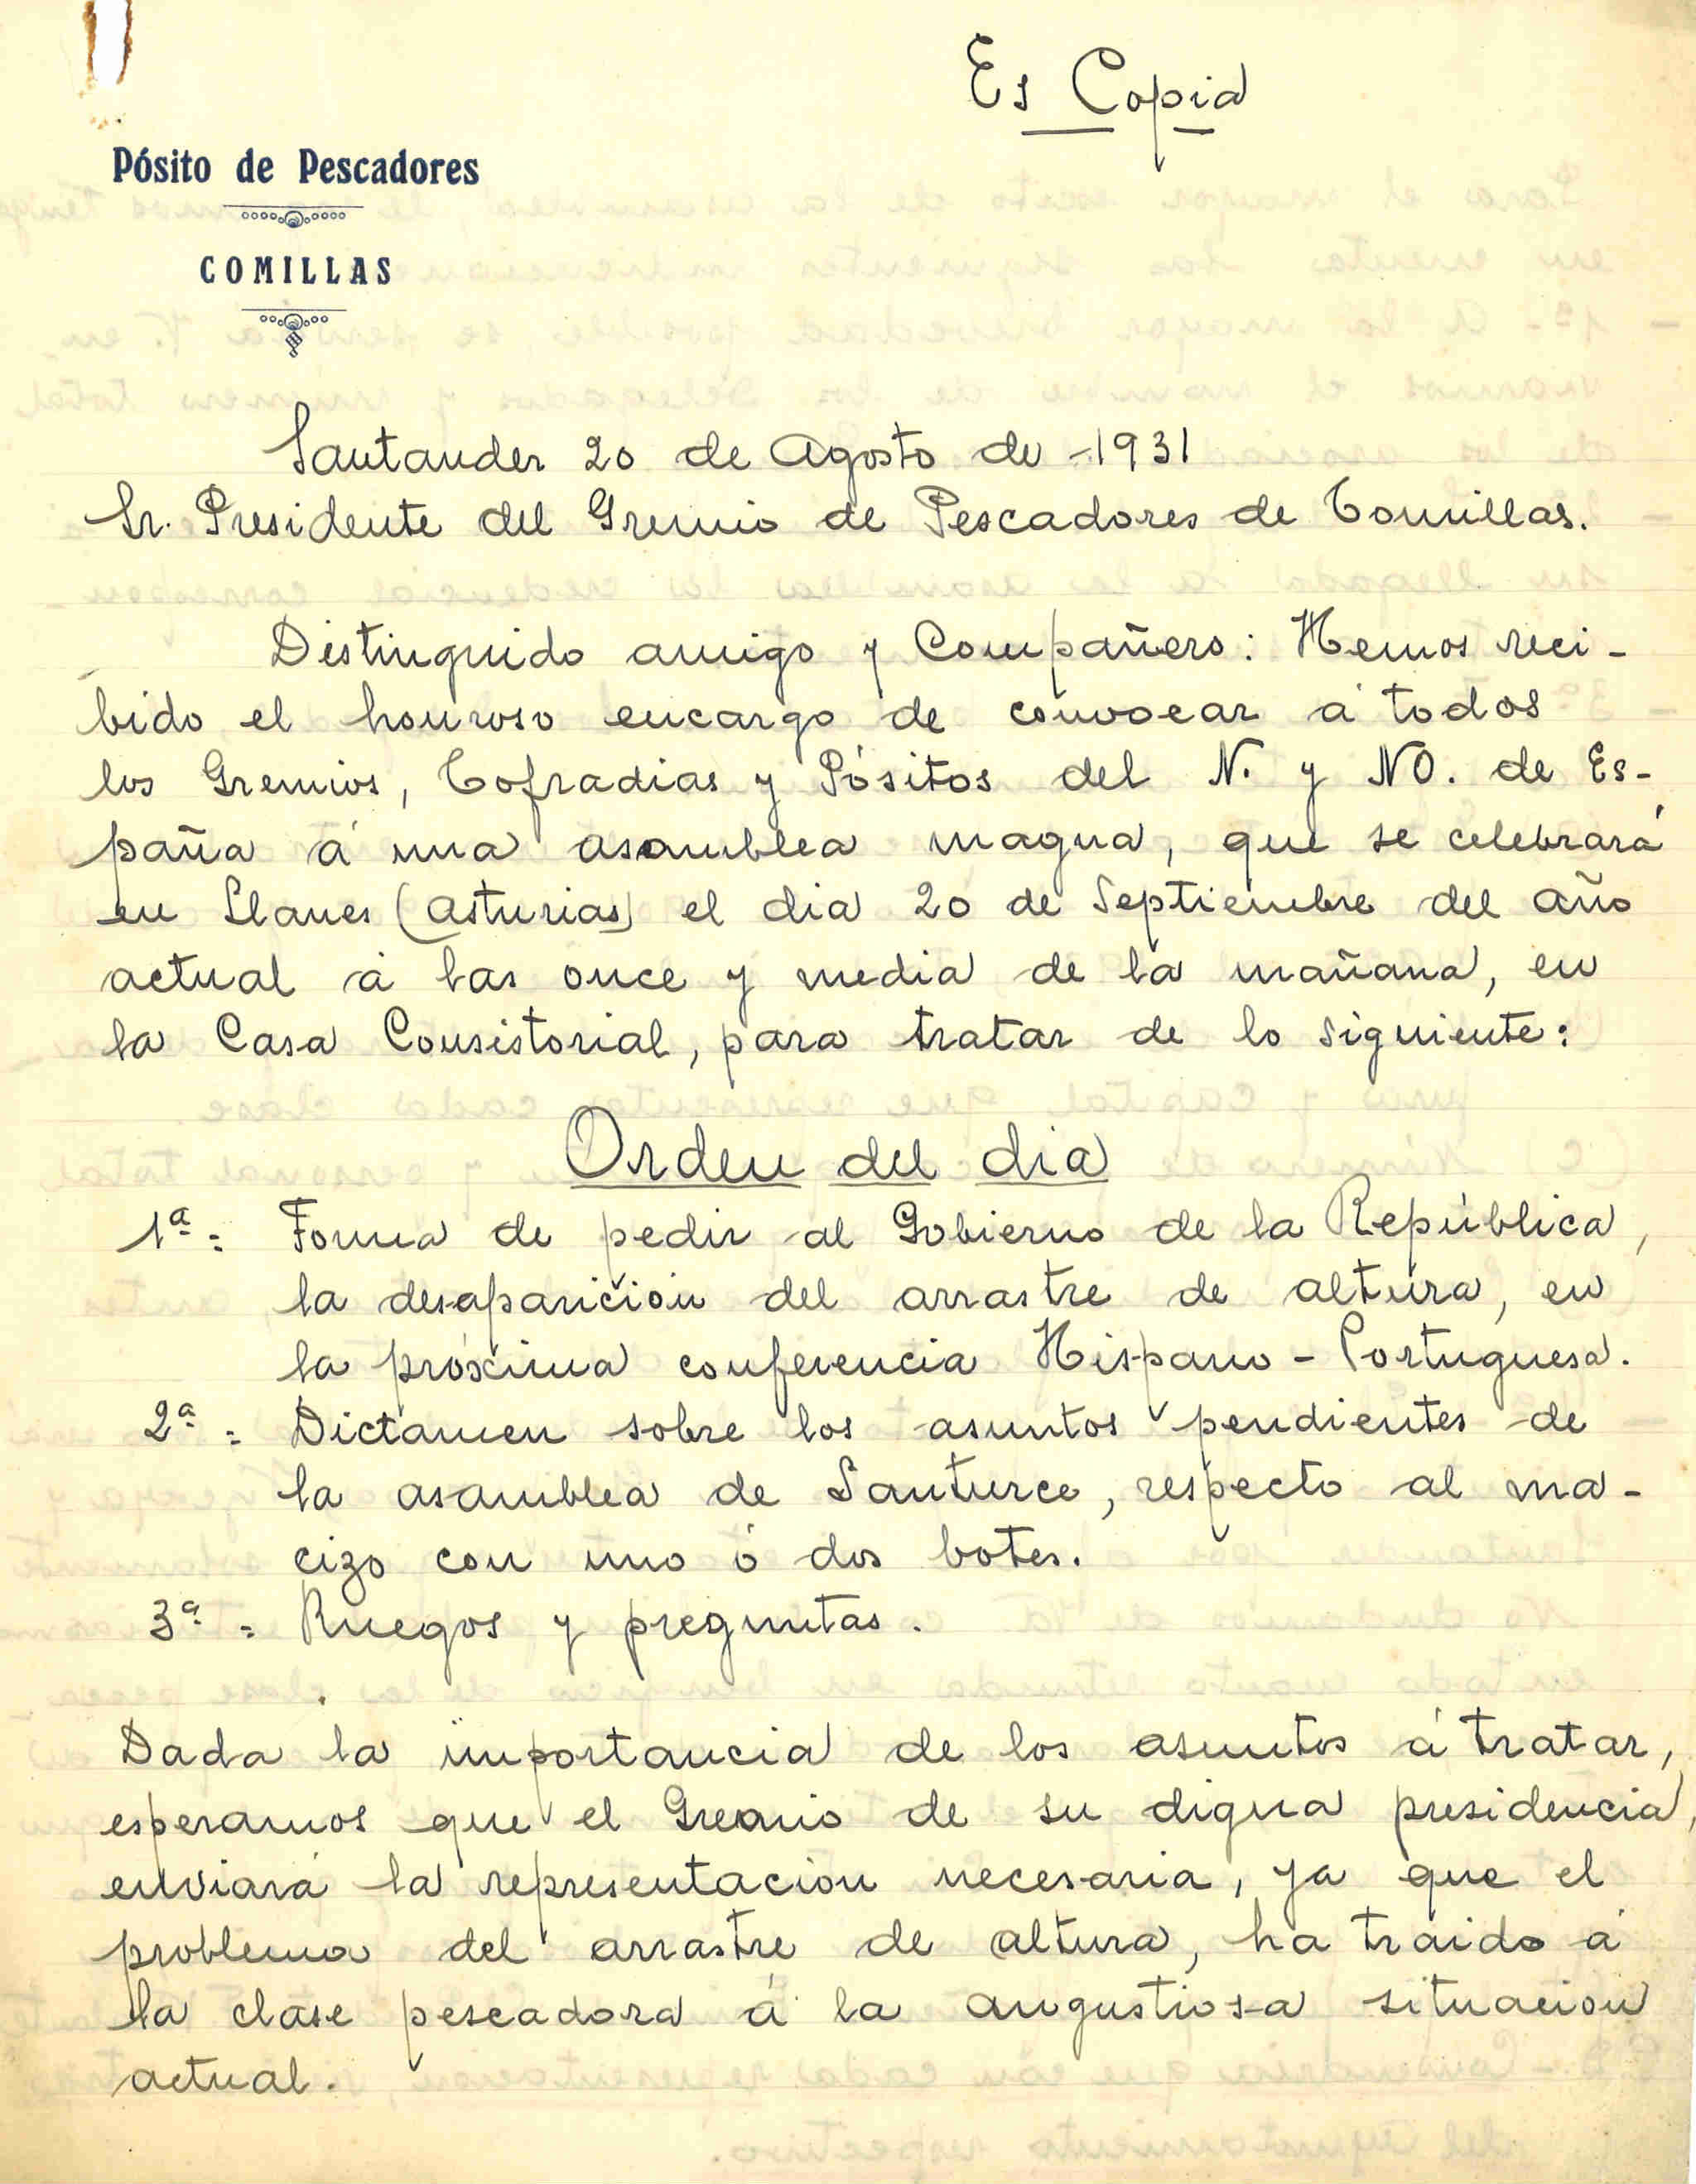 Es Copia
Pósito de Pescadores
COMILLAS
Santander 20 de Agosto de 1931
Sr. Presidente del Gremio de Pescadores de Comillas.
Distinguido amigo y Compañero: Hemos reci-
bido el honroso encargo de convocar á todos
los Gremios, Cofradias y Pósitos del N. y NO. de Es-
paña á una asamblea magna, que se celebrará
en Llanes (Asturias) el dia 20 de Septiembre del año
actual á las once y media de la mañana, en
la Casa Consistorial, para tratar de lo siguiente:
Orden del dia
1ª = Forma de pedir al Gobierno de la República,
la desaparición del arrastre de altura, en
la próxima conferencia Hispano - Portuguesa.
2ª = Dictamen sobre los asuntos pendientes de
la asamblea de Santurce, respecto al ma-
cizo con uno ó dos botes.
3ª = Ruegos y preguntas.
Dada la importancia de los asuntos á tratar,
esperamos que el Gremio de su digna presidencia,
enviará la representacion necesaria, ya que el
problema del arrastre de altura, ha traido á
la clase pescadora á la angustiosa situacion
actual.